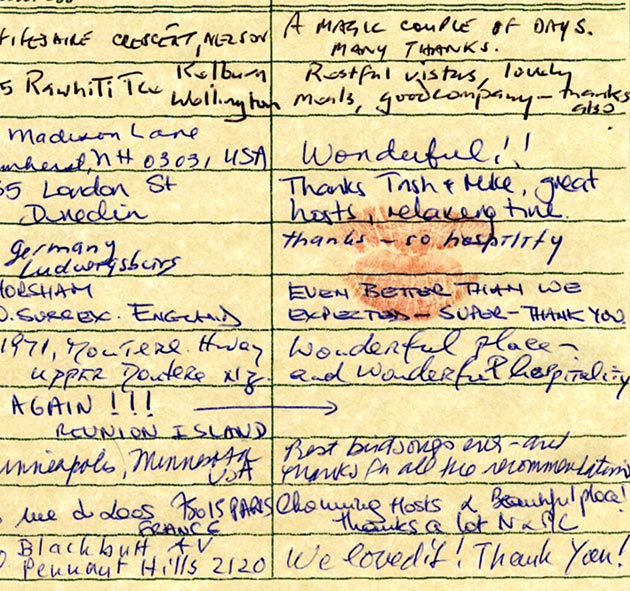 CRESCENT, NELSON A MAGIC COUPLE OF DAYS.
MANY THANKS.
5 Rawhiti Tce Kelburn Restful vistas, lovely
Wellington meals, good company – thanks
also
Madison Lane
Amherst, NH 03031 USA Wonderful!!
35 London St Thanks Trish & Mike, great
Dunedin hosts, relaxing time.
germany thanks – so hospility
Ludwigsburg
HORSHAM EVEN BETTER THAN WE
W. SURREX. ENGLAND EXPECTED – SUPER – THANK YOU
1971, Moutere Hway Wonderful place –
UPPER Moutere NZ. and Wonderful hospitality
AGAIN !!!
REUNION ISLAND
Minneapolis, Minnesota Best birdsongs ever – and
USA thanks for all the recommendations
75015 PARIS Charming Hosts & Beautiful place!
FRANCE Thanks a lot N & PC
Blackbutt AV We loved it! Thank You!
Pennant Hills 2120